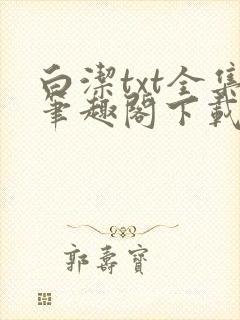 白潔txt全集
筆趣閣下載
郭壽寶